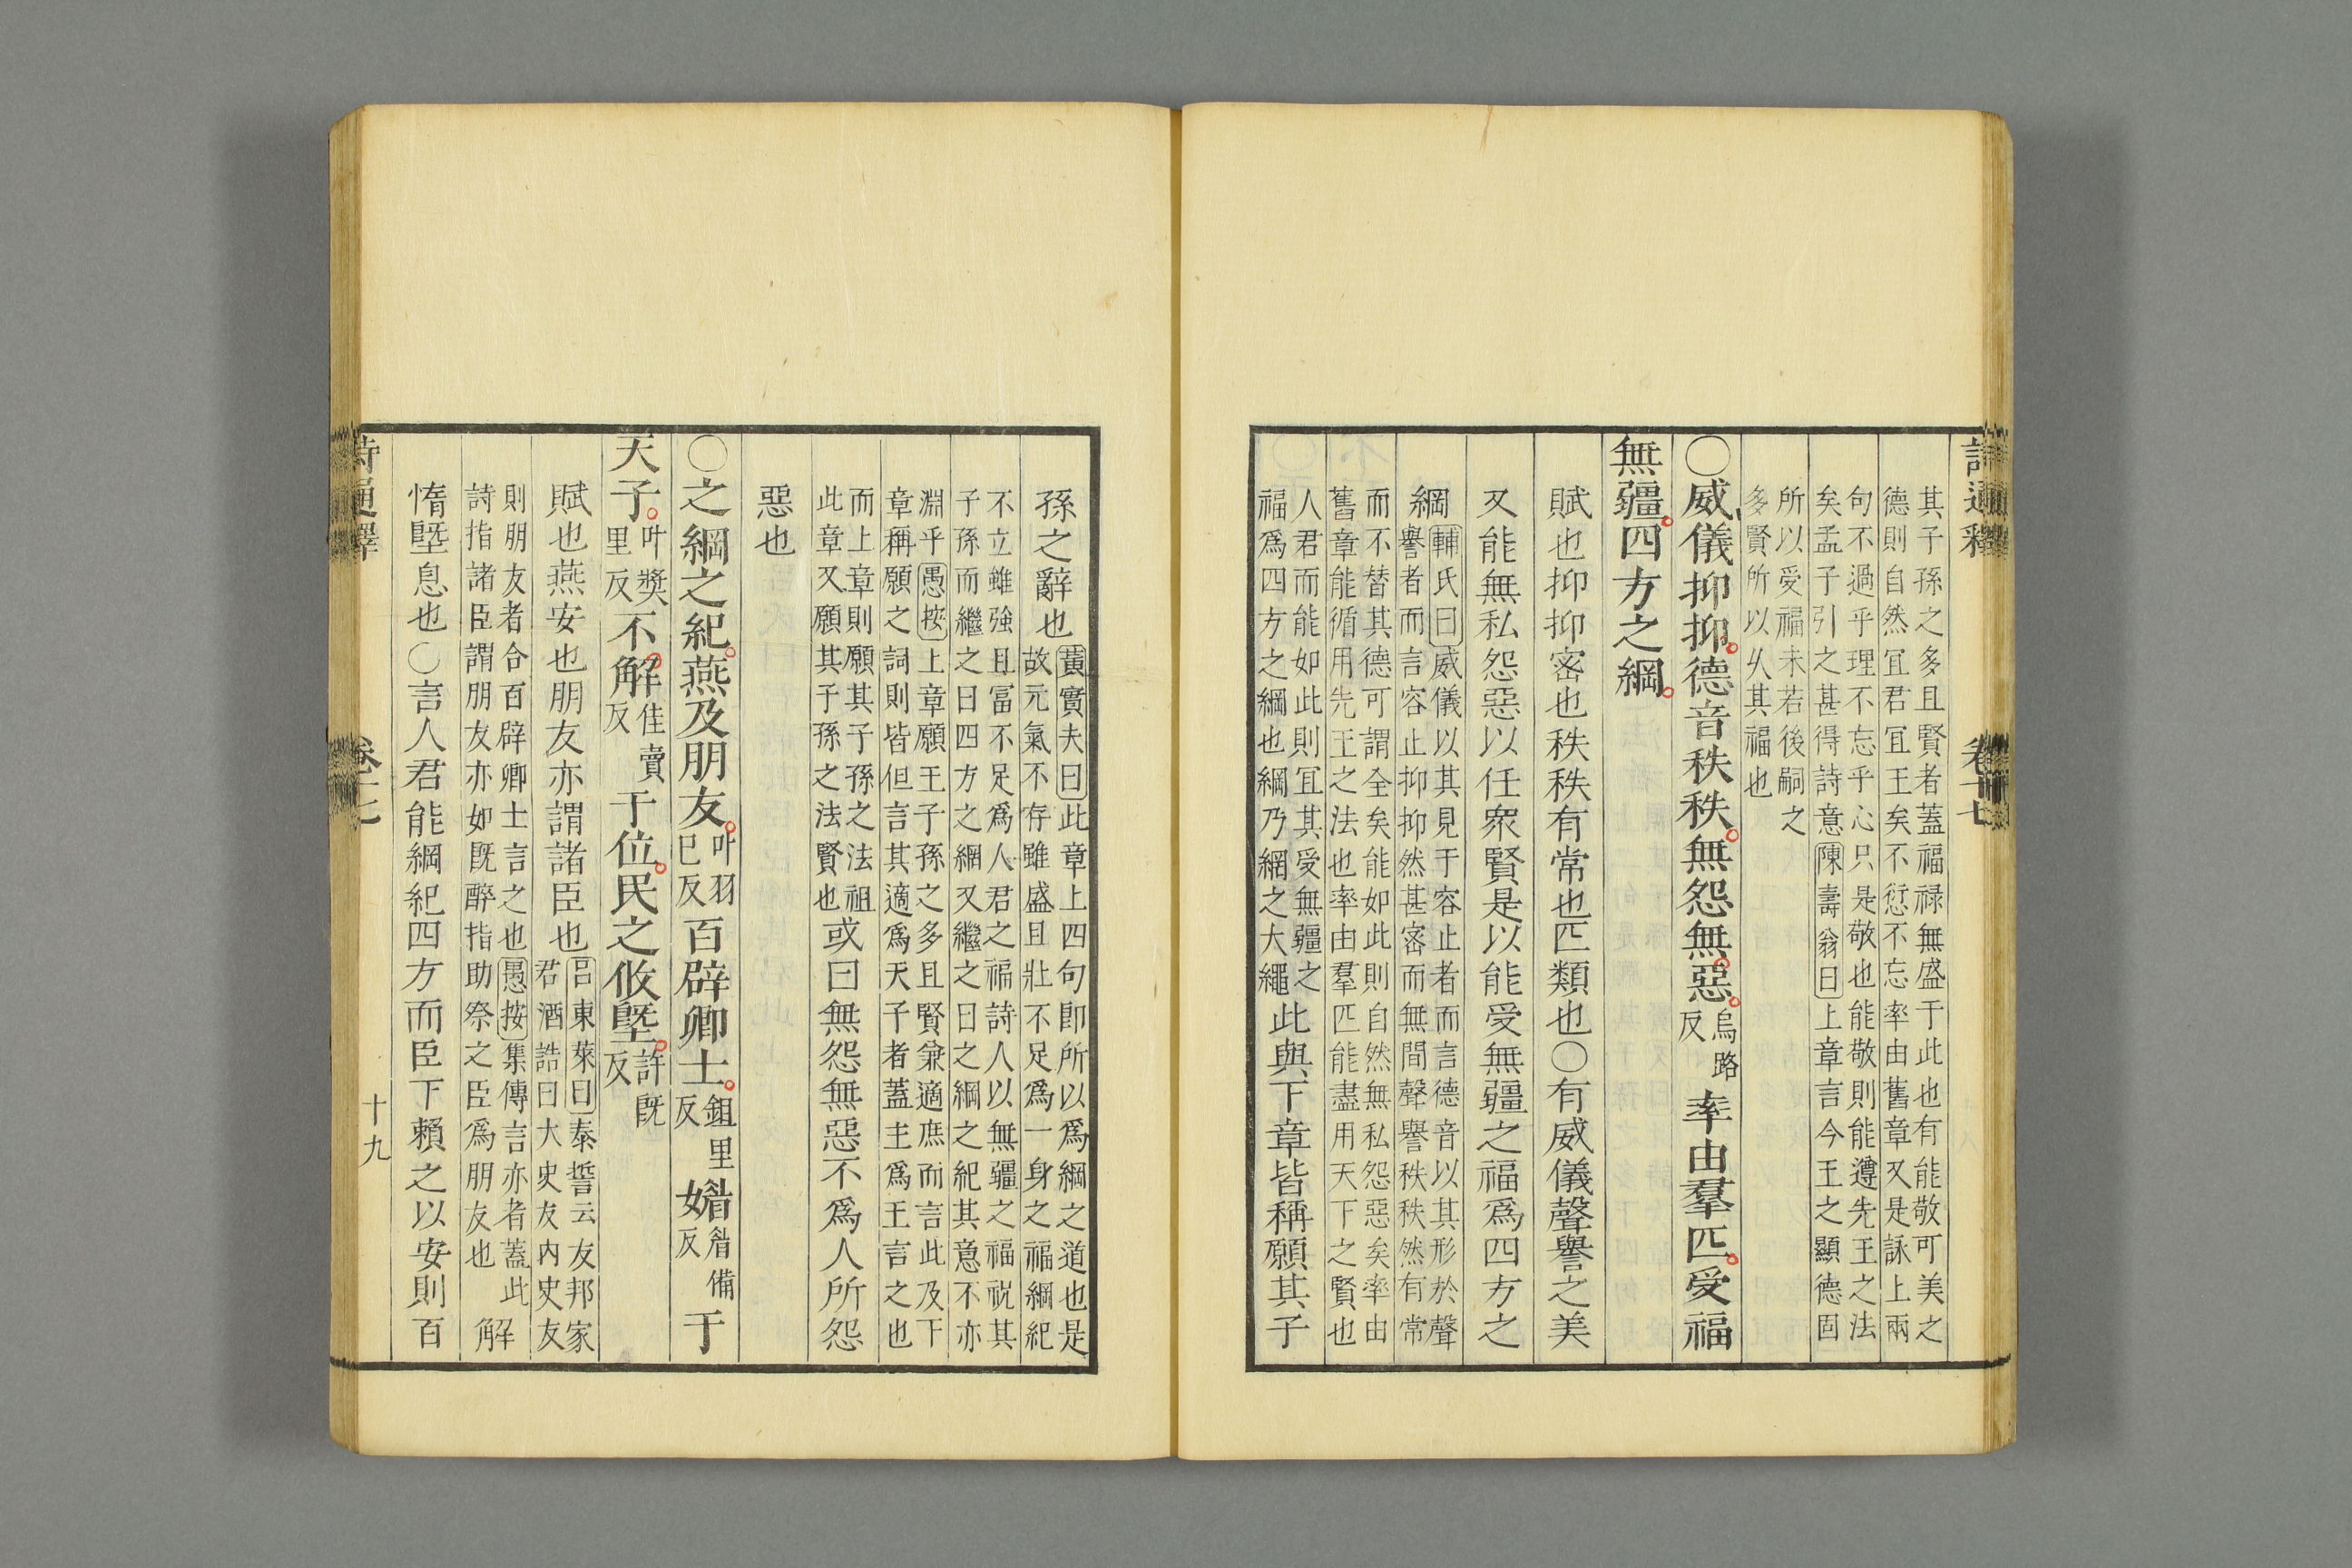 詩通釋
卷十七
其子孫之多且賢者蓋福祿無盛于此也有能敬可美之
德則自然宜君宜王矣不愆不忘率由舊章又是詠上兩
句不過乎理不忘乎心只是敬也能敬則能遵先王之法
矣孟子引之甚得詩意陳壽翁曰上章言今王之顯德固
所以受福未若後嗣之
多賢所以乆其福也
〇威儀抑抑德音秩秩無怨無惡烏路反率由羣匹受福
無疆四方之綱
賦也抑抑密也秩秩有常也匹類也〇有威儀聲譽之美
又能無私怨惡以任衆賢是以能受無疆之福爲四方之
綱輔氏曰威儀以其見于容止者而言德音以其形於聲
譽者而言容止抑抑然甚密而無間聲譽秩秩然有常
而不替其德可謂全矣能如此則自然無私怨惡矣率由
舊章能循用先王之法也率由羣匹能盡用天下之賢也
人君而能如此則宜其受無疆之
福爲四方之綱也綱乃網之大繩此與下章皆稱願其子
孫之辭也黃實夫曰此章上四句卽所以爲綱之道也是
故元氣不存雖盛且壯不足爲一身之福綱紀
不立雖強且富不足爲人君之福詩人以無疆之福祝其
子孫而繼之曰四方之綱又繼之曰之綱之紀其意不亦
淵乎愚按上章願王子孫之多且賢兼適庶而言此及下
章稱願之詞則皆但言其適爲天子者蓋主爲王言之也
而上章則願其子孫之法祖
此章又願其子孫之法賢也或曰無怨無惡不爲人所怨
惡也
〇之綱之紀燕及朋友叶羽已反百辟卿士鉏里反媚眉備反于
天子叶獎里反不解佳賣反于位民之攸墍許旣反
賦也燕安也朋友亦謂諸臣也呂東萊曰泰誓云友邦家
君酒誥曰大史友内史友
則朋友者合百辟卿士言之也愚按集傳言亦者蓋此
詩指諸臣謂朋友亦如旣醉指助祭之臣爲朋友也解
惰墍息也〇言人君能綱紀四方而臣下賴之以安則百
詩通釋
卷十七
十九